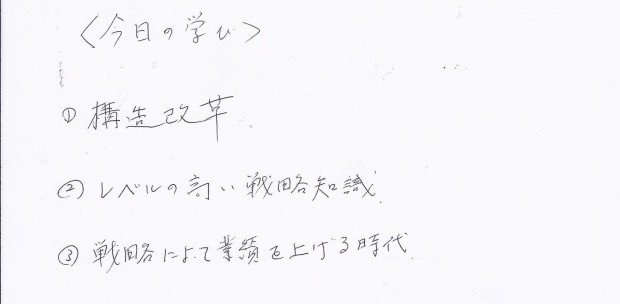 <今日の学び>
① 構造改革.
② レベルの高い戦略知識.
③ 戦略によって業績を上げる時代.